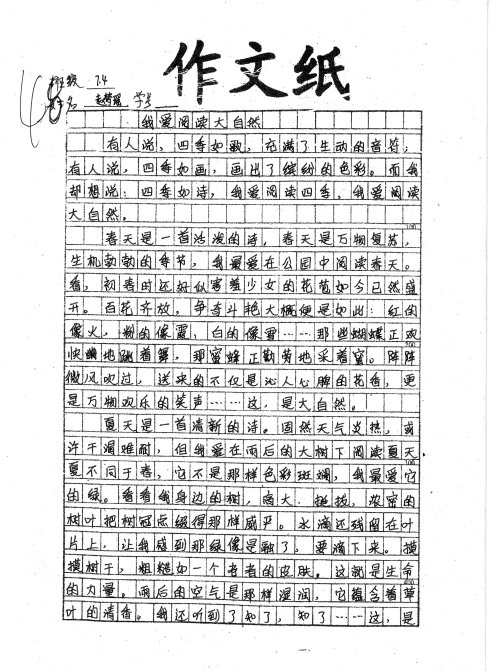 作文纸
班级 7.4
姓名 学号
48
我爱阅读大自然
有人说，四季如歌，充满了生动的音符；
有人说，四季如画，画出了缤纷的色彩。而我
却想说：四季如诗，我爱阅读四季，我爱阅读
大自然。
100
春天是一首活泼的诗，春天是万物复苏，
生机勃勃的季节，我最爱在公园中阅读春天。
看，初春时还好似害羞少女的花苞如今已然盛
开。百花齐放，争奇斗艳大概便是如此：红的
像火，粉的像霞，白的像雪……那些蝴蝶正欢
200
快地跳着舞，那蜜蜂正勤劳地采着蜜。阵阵
微风吹过，送来的不仅是沁人心脾的花香，更
是万物欢乐的笑声……这，是大自然。
夏天是一首清新的诗。固然天气炎热，或
300
许干渴难耐，但我爱在雨后的大树下阅读夏天
夏不同于春，它不是那样色彩斑斓，我最爱它
的绿。看看我身边的树，高大、挺拔，浓密的
树叶把树冠点缀得那样威严。水滴还残留在叶
片上，让我感到那绿像是融了，要滴下来。摸
摸树干，粗糙如一个老者的皮肤。这就是生命
400
的力量。雨后的空气是那样湿润，它蕴含着草
叶的清香。我还听到了知了，知了……这，是